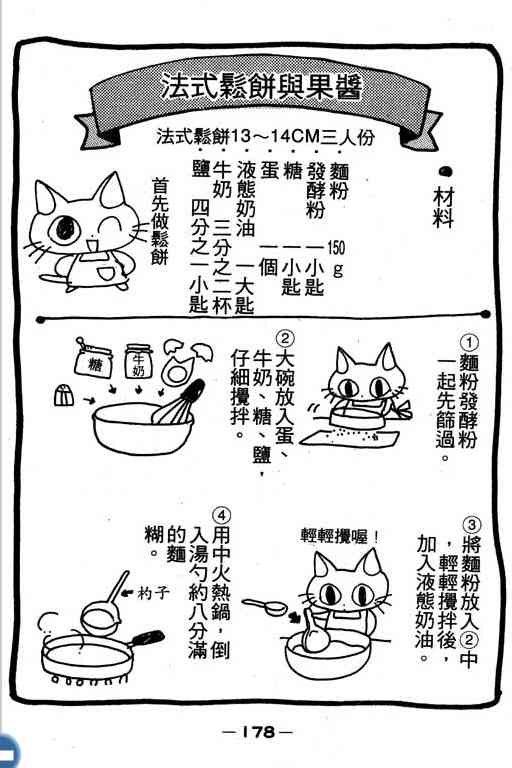 法式鬆餅與果醬
法式鬆餅13～14CM三人份
●材料
麵粉 150g
發酵粉 一小匙
糖 一小匙
蛋 一個
液態奶油 一大匙
牛奶 三分之二杯
鹽 四分之一小匙
首先做鬆餅
①麵粉發酵粉
一起先篩過。
②大碗放入蛋、
牛奶、糖、鹽，
仔細攪拌。
糖
牛奶
③將麵粉放入②中
，輕輕攪拌後，
加入液態奶油。
輕輕攪喔！
④用中火熱鍋，倒
入湯勺約八分滿
的麵
糊。
杓子
—178—